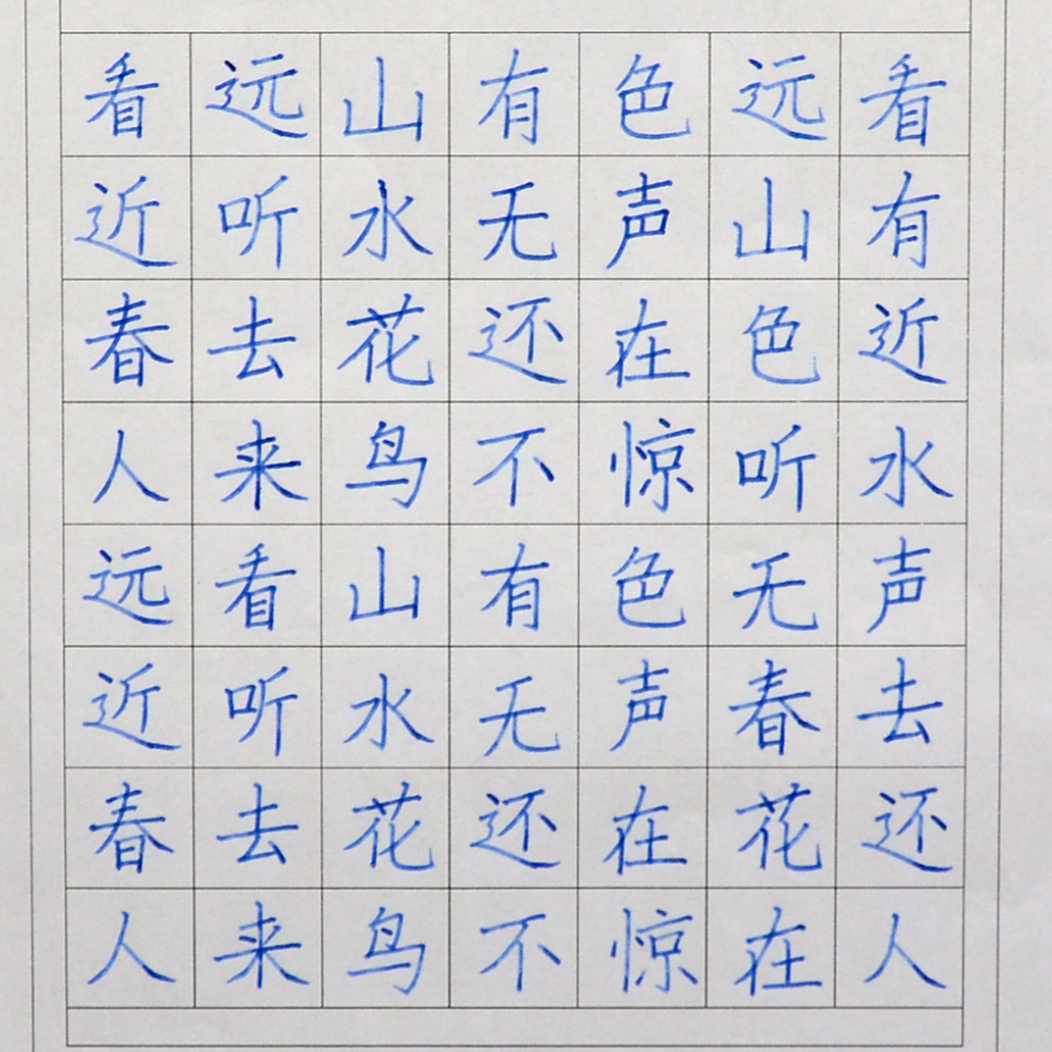 看远山有色远看
近听水无声山有
春去花还在色近
人来鸟不惊听水
远看山有色无声
近听水无声春去
春去花还在花还
人来鸟不惊在人